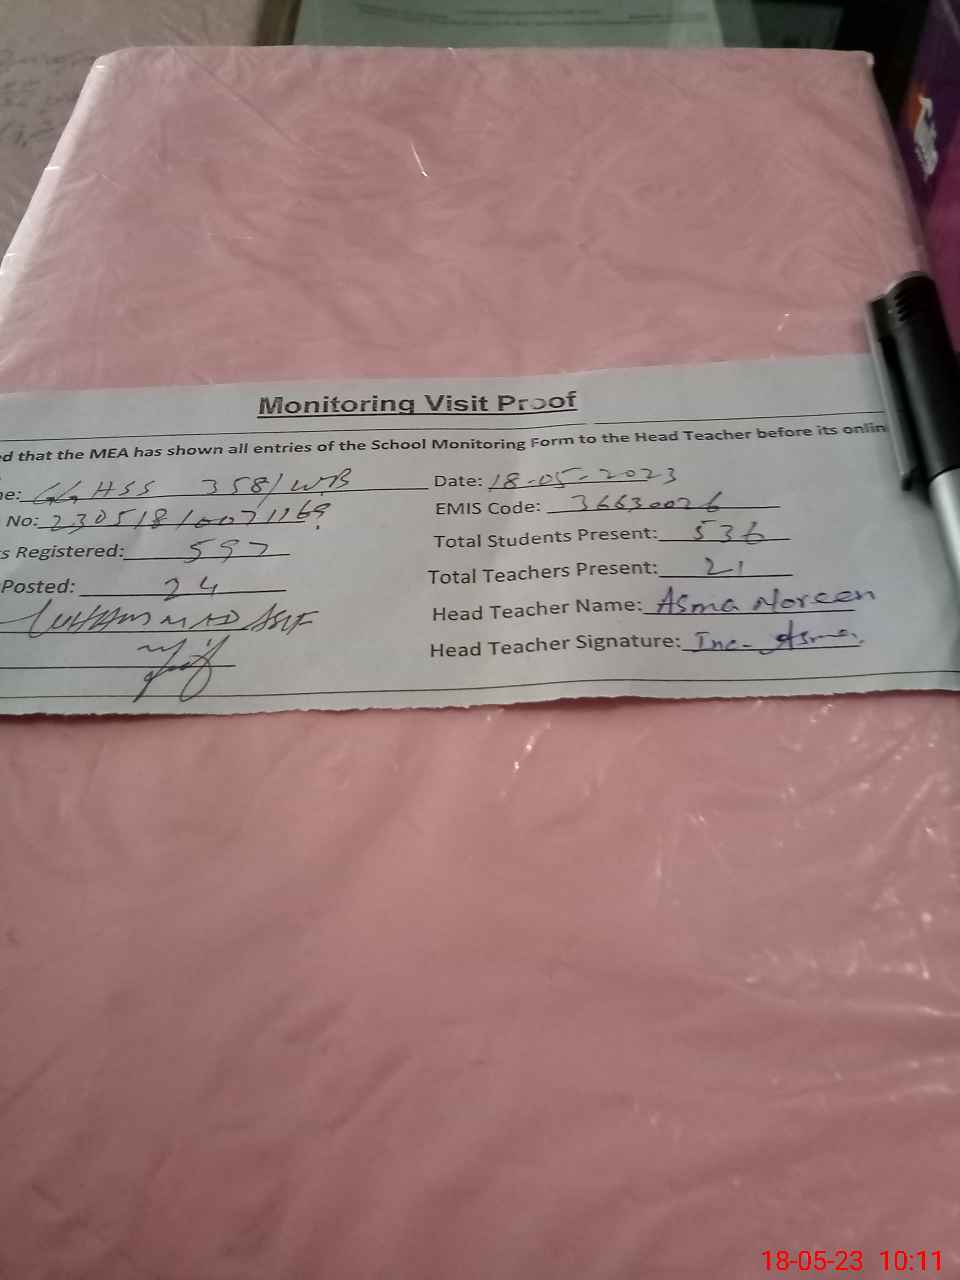 Monitoring Visit Proof
ed that the MEA has shown all entries of the School Monitoring Form to the Head Teacher before its onlin
me: GGHSS 358/WB Date: 18-05-2023
No: 230518/0071169 EMIS Code: 36630026
s Registered: 597 Total Students Present: 536
Posted: 24 Total Teachers Present: 21
MUHAMMAD ASIF Head Teacher Name: Asma Noreen
Head Teacher Signature: Inc- Asma
18-05-23 10:11